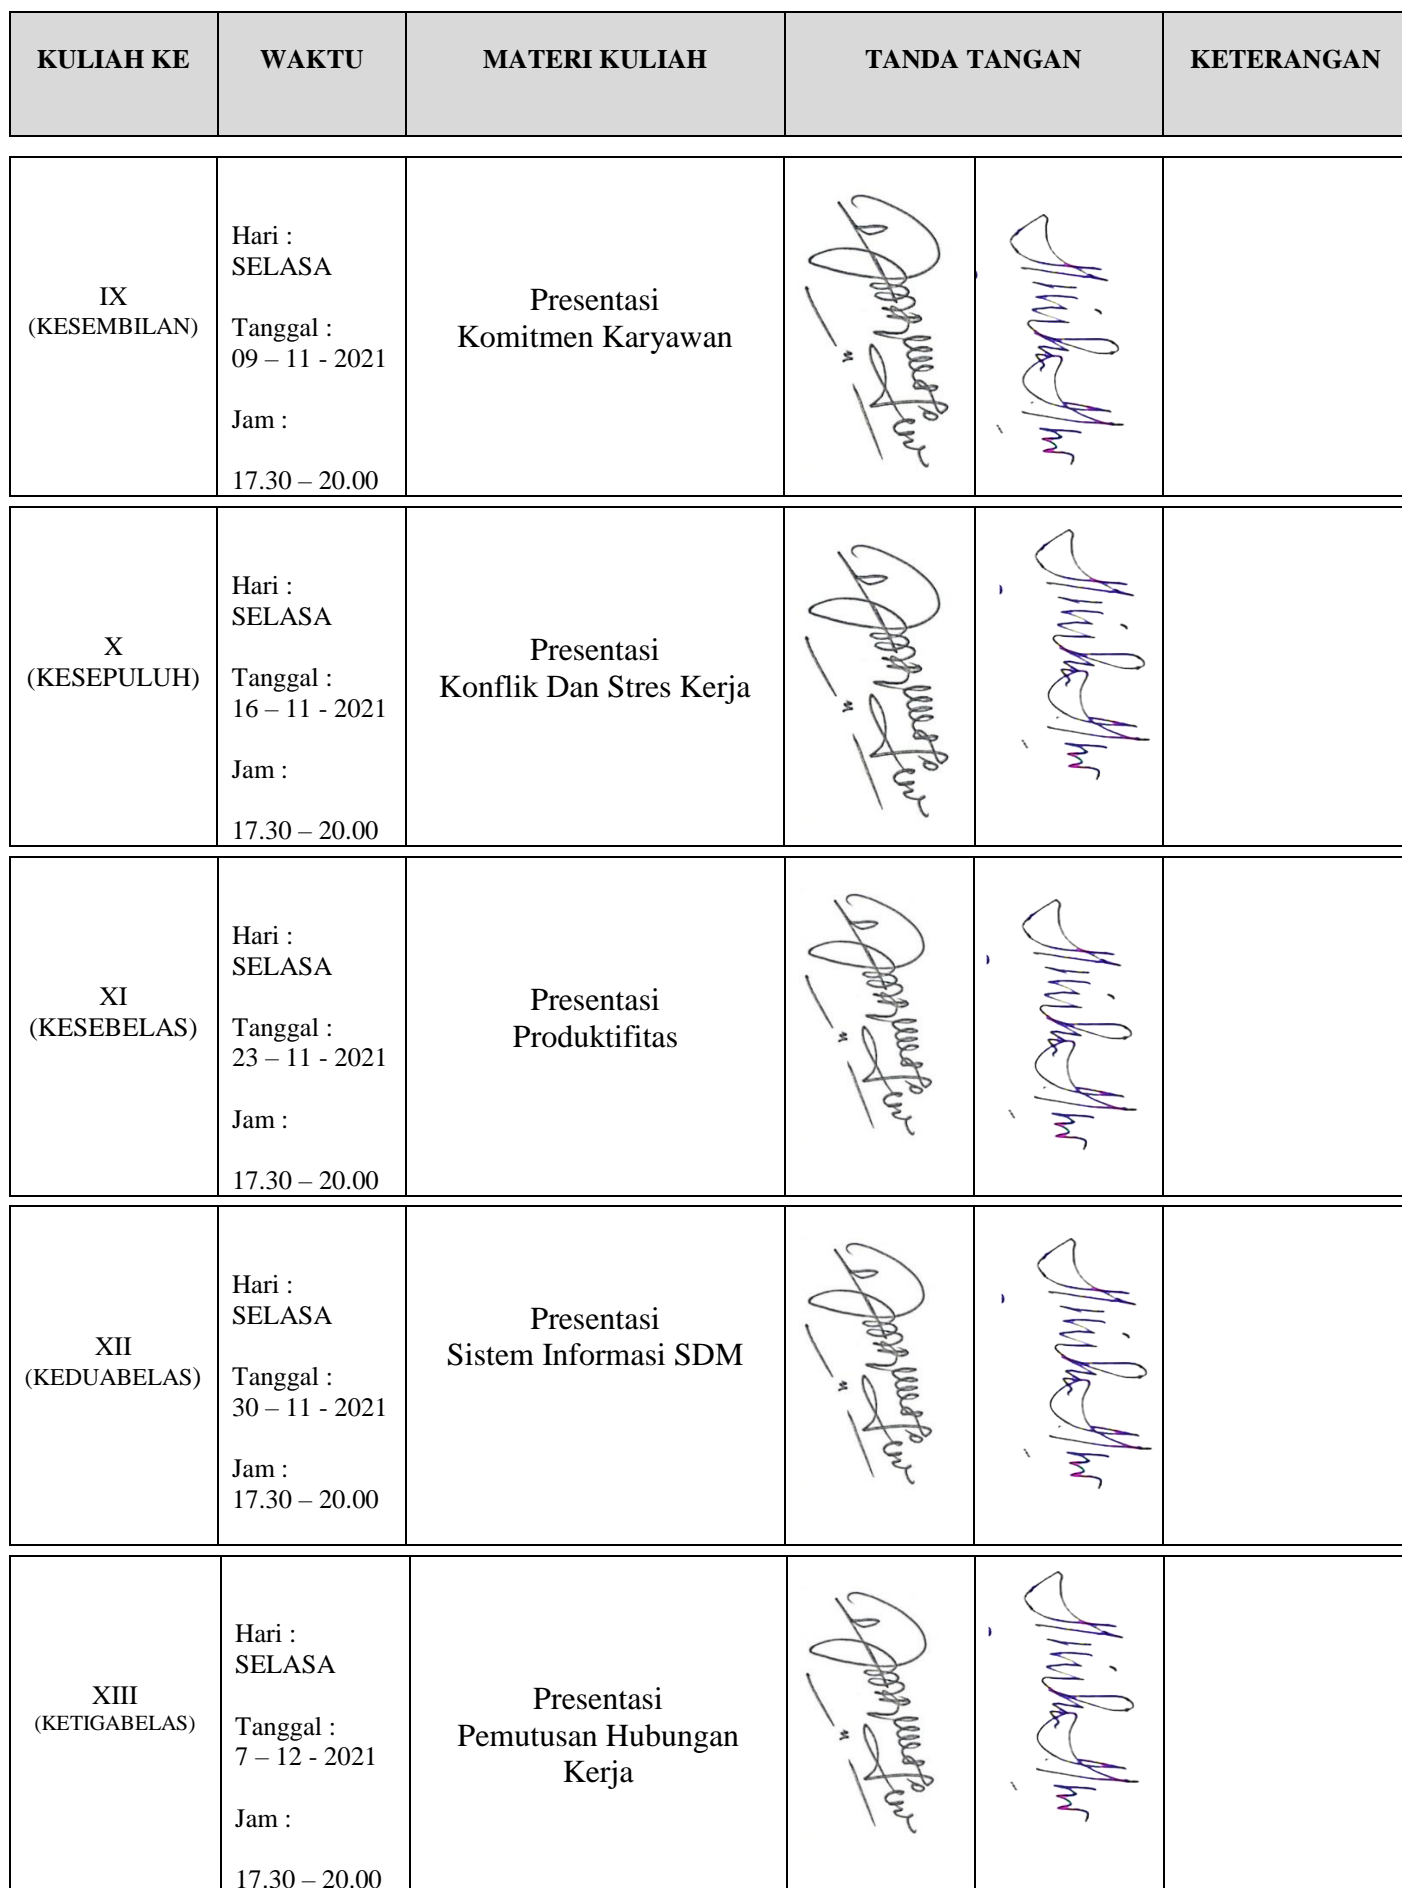 KULIAH KE
WAKTU
MATERI KULIAH
TANDA TANGAN
KETERANGAN
IX
(KESEMBILAN)
Hari :
SELASA
Tanggal :
09 – 11 - 2021
Jam :
17.30 – 20.00
Presentasi
Komitmen Karyawan
X
(KESEPULUH)
Hari :
SELASA
Tanggal :
16 – 11 - 2021
Jam :
17.30 – 20.00
Presentasi
Konflik Dan Stres Kerja
XI
(KESEBELAS)
Hari :
SELASA
Tanggal :
23 – 11 - 2021
Jam :
17.30 – 20.00
Presentasi
Produktifitas
XII
(KEDUABELAS)
Hari :
SELASA
Tanggal :
30 – 11 - 2021
Jam :
17.30 – 20.00
Presentasi
Sistem Informasi SDM
XIII
(KETIGABELAS)
Hari :
SELASA
Tanggal :
7 – 12 - 2021
Jam :
17.30 – 20.00
Presentasi
Pemutusan Hubungan
Kerja